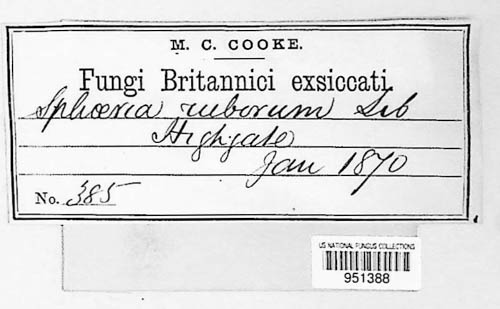 M. C. COOKE.
Fungi Britannici exsiccati
Sphæria ruborum Lib
Highgate
Jan 1870
No. 385
US NATIONAL FUNGUS COLLECTIONS
951388